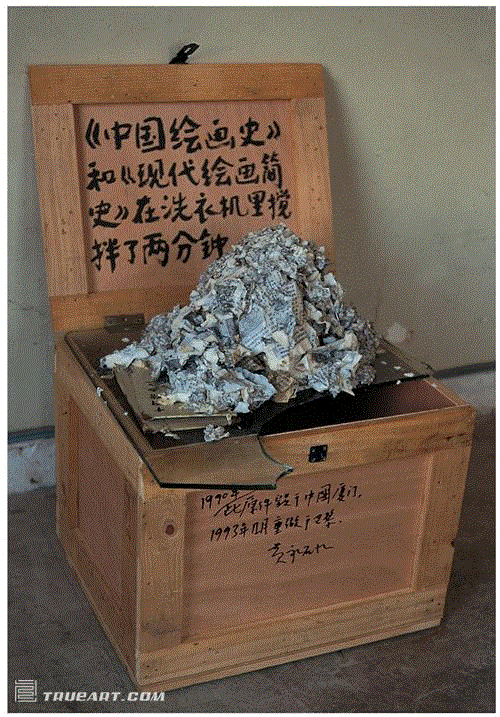 《中国绘画史》
和《现代绘画简
史》在洗衣机里搅
拌了两分钟
1990年
此原件毁于中国厦门.
1993年12月重做于巴黎.
黄永砅
TRUEART.COM